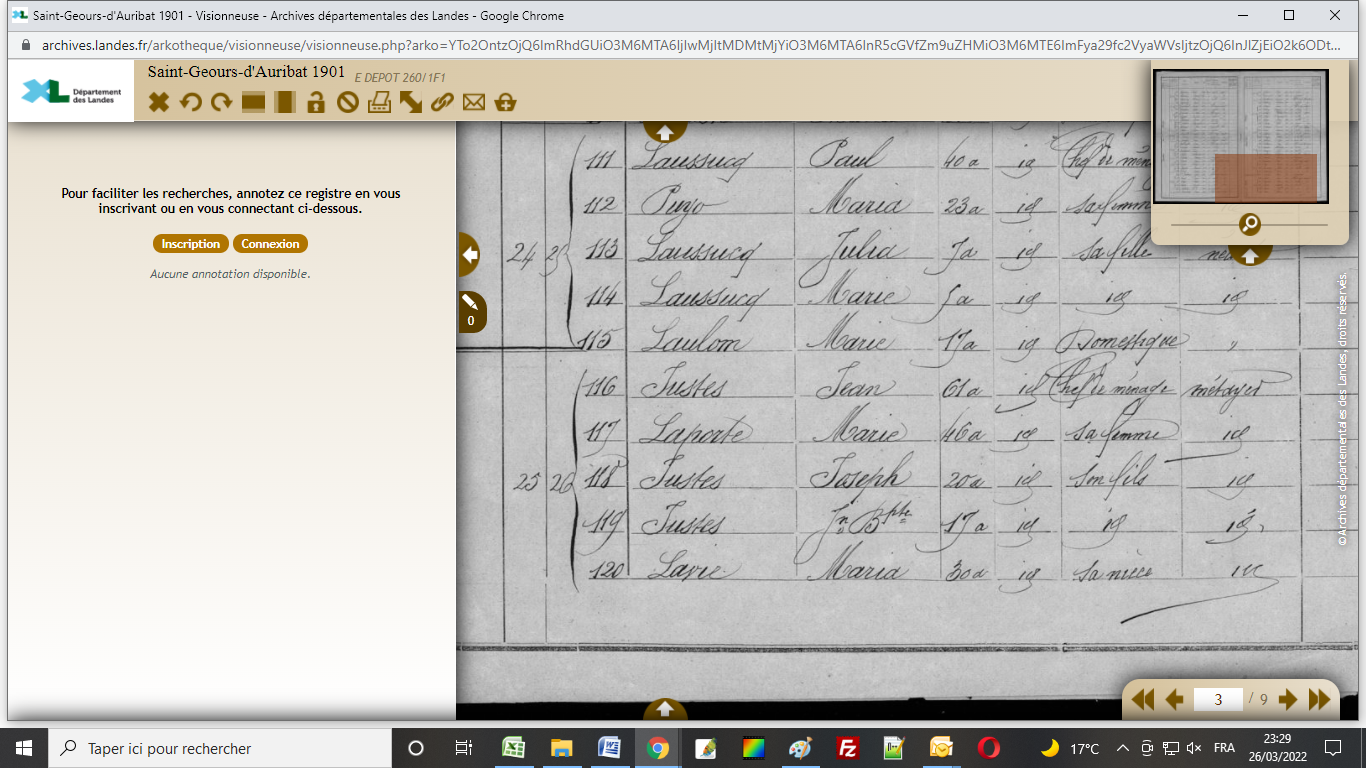 Saint-Geours-d'Auribat 1901 - Visionneuse - Archives départementales des Landes - Google Chrome
archives.landes.fr/arkotheque/visionneuse/visionneuse.php?arko=
Saint-Geours-d'Auribat 1901 E DEPOT 260/1F1
XL Département des Landes
Pour faciliter les recherches, annotez ce registre en vous
inscrivant ou en vous connectant ci-dessous.
Inscription Connexion
Aucune annotation disponible.
0
111 Laussucq Paul 40a id Chef de
112 Puyo Maria 23a id sa femme
24 25 113 Laussucq Julia 7a id sa fille
114 Laussucq Marie 5a id id id
115 Laulom Marie 17a id Domestique "
116 Justes Jean 61a id Chef de ménage métayer
117 Laporte Marie 46a id sa femme id
25 26 118 Justes Joseph 20a id son fils id
119 Justes Jn Bpte 17a id id id
120 Lavie Maria 30a id sa nièce id
©Archives départementales des Landes, droits réservés.
3 / 9
Taper ici pour rechercher
17°C FRA 23:29
26/03/2022